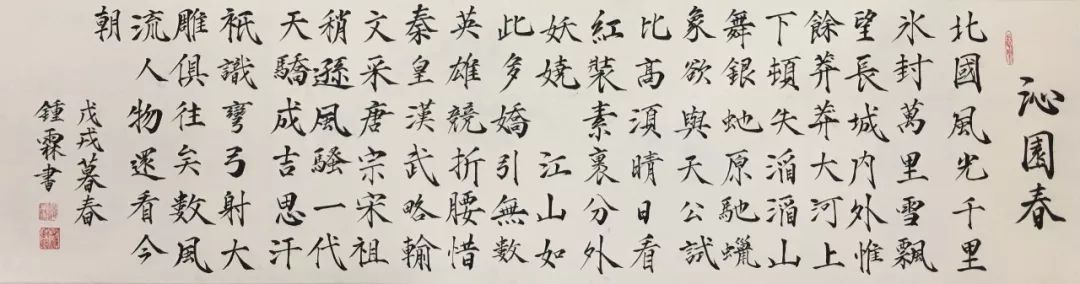 沁園春
北國風光千里
氷封萬里雪飄
望長城内外惟
餘莽莽大河上
下頓失滔滔山
舞銀虵原馳蠟
象欲與天公試
比高須晴日看
紅裝素裹分外
妖嬈 江山如
此多嬌引無數
英雄競折腰惜
秦皇漢武略輸
文采唐宗宋祖
稍遜風騷一代
天驕成吉思汗
衹識彎弓射大
雕俱往矣數風
流人物還看今
朝
戊戌暮春
鍾霖書